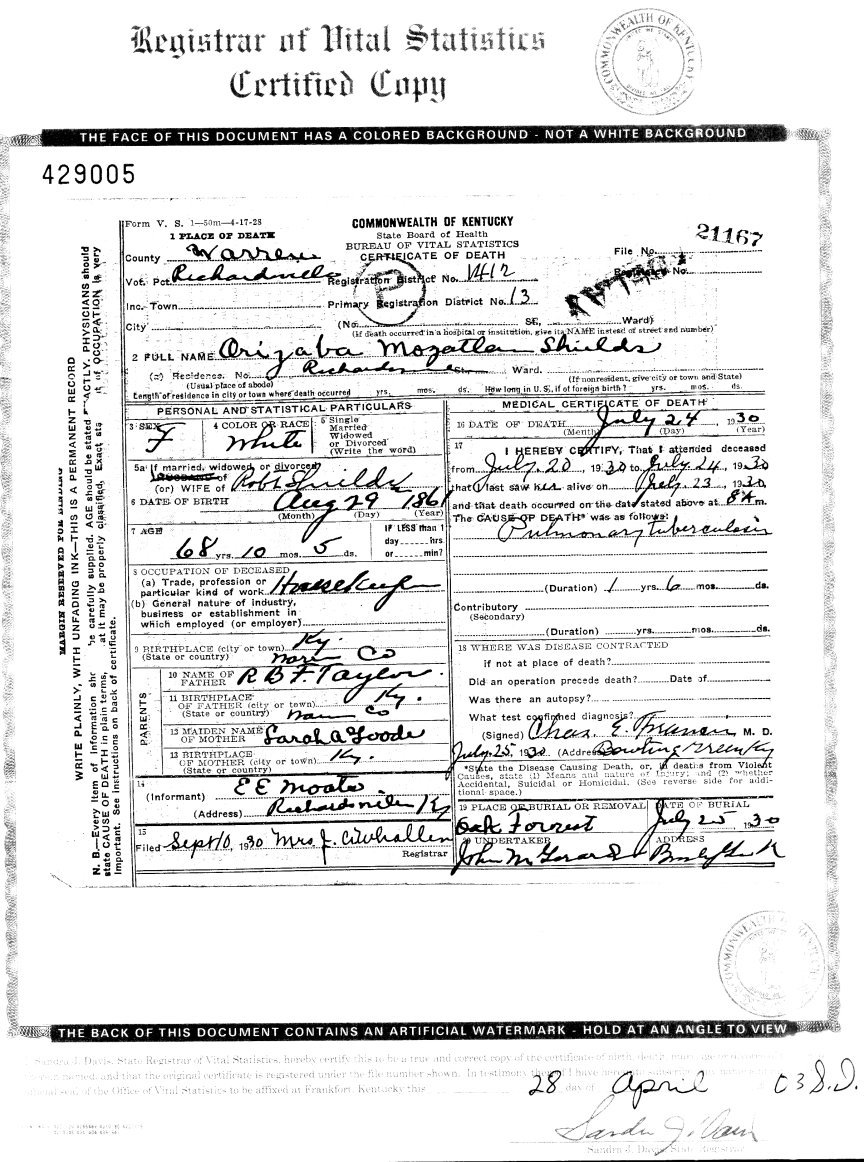 Registrar of Vital Statistics
Certified Copy
COMMONWEALTH OF KENTUCKY
THE FACE OF THIS DOCUMENT HAS A COLORED BACKGROUND - NOT A WHITE BACKGROUND
429005
Form V. S. 1—50m—4-17-28
COMMONWEALTH OF KENTUCKY
State Board of Health
BUREAU OF VITAL STATISTICS
CERTIFICATE OF DEATH
File No. 21167
Registrar's No.
1 PLACE OF DEATH
County Warren
Vot. Pct. Richardsville
Registration District No. 1412
Inc. Town
Primary Registration District No. 13
City
(No. St., Ward)
(If death occurred in a hospital or institution, give its NAME instead of street and number)
2 FULL NAME Orizaba Mozatlan Shields
(a) Residence. No. St. Ward.
(Usual place of abode) (If nonresident, give city or town and State)
Length of residence in city or town where death occurred yrs. mos. ds. How long in U. S., if of foreign birth? yrs. mos. ds.
PERSONAL AND STATISTICAL PARTICULARS
3 SEX F
4 COLOR OR RACE White
5 Single
Married
Widowed
or Divorced
(Write the word)
5a If married, widowed, or divorced
HUSBAND of
(or) WIFE of Robt Shields
6 DATE OF BIRTH Aug 29 1861
(Month) (Day) (Year)
7 AGE
68 yrs. 10 mos. 5 ds.
IF LESS than 1
day hrs.
or min?
8 OCCUPATION OF DECEASED
(a) Trade, profession or
particular kind of work
(b) General nature of industry,
business or establishment in
which employed (or employer)
9 BIRTHPLACE (city or town) Ky.
(State or country) Warren Co
PARENTS
10 NAME OF
FATHER R B F. Taylor
11 BIRTHPLACE
OF FATHER (city or town) Ky.
(State or country) Warren Co
12 MAIDEN NAME
OF MOTHER Sarah A Goode
13 BIRTHPLACE
OF MOTHER (city or town) Ky.
(State or country)
14
(Informant) E E Moate
(Address) Richardsville Ky
15
Filed Sept 10, 1930 Mrs J. C. Whallen
Registrar
MEDICAL CERTIFICATE OF DEATH
16 DATE OF DEATH July 24, 1930
(Month) (Day) (Year)
17
I HEREBY CERTIFY, That I attended deceased
from July 20, 1930 to July 24, 1930
that I last saw her alive on July 23, 1930
and that death occurred on the date stated above at 8 A m.
The CAUSE OF DEATH* was as follows:
Pulmonary tuberculosis
(Duration) 1 yrs. 6 mos. ds.
Contributory
(Secondary)
(Duration) yrs. mos. ds.
18 WHERE WAS DISEASE CONTRACTED
if not at place of death?
Did an operation precede death? Date of
Was there an autopsy?
What test confirmed diagnosis?
(Signed) Chas. E. Francis M. D.
July 25, 1930 (Address) Bowling Green Ky
*State the Disease Causing Death, or, in deaths from Violent
Causes, state (1) Means and nature of Injury; and (2) whether
Accidental, Suicidal or Homicidal. (See reverse side for addi-
tional space.)
19 PLACE OF BURIAL OR REMOVAL
Oak Forrest
DATE OF BURIAL
July 25, 1930
20 UNDERTAKER
John M Gerard
ADDRESS
MARGIN RESERVED FOR BINDING
WRITE PLAINLY, WITH UNFADING INK—THIS IS A PERMANENT RECORD
N. B.—Every item of information should be carefully supplied. AGE should be stated EXACTLY. PHYSICIANS should
state CAUSE OF DEATH in plain terms, that it may be properly classified. Exact statement of OCCUPATION is very
important. See instructions on back of certificate.
COMMONWEALTH OF KENTUCKY
THE BACK OF THIS DOCUMENT CONTAINS AN ARTIFICIAL WATERMARK - HOLD AT AN ANGLE TO VIEW
I, Sandra J. Davis, State Registrar of Vital Statistics, hereby certify this to be a true and correct copy of the certificate of birth, death,
and that the original certificate is registered under the file number shown. In testimony thereof I have
seal of the Office of Vital Statistics to be affixed at Frankfort, Kentucky this 28 day of April 03 S.D.
Sandra J. Davis
Sandra J. Davis, State Registrar